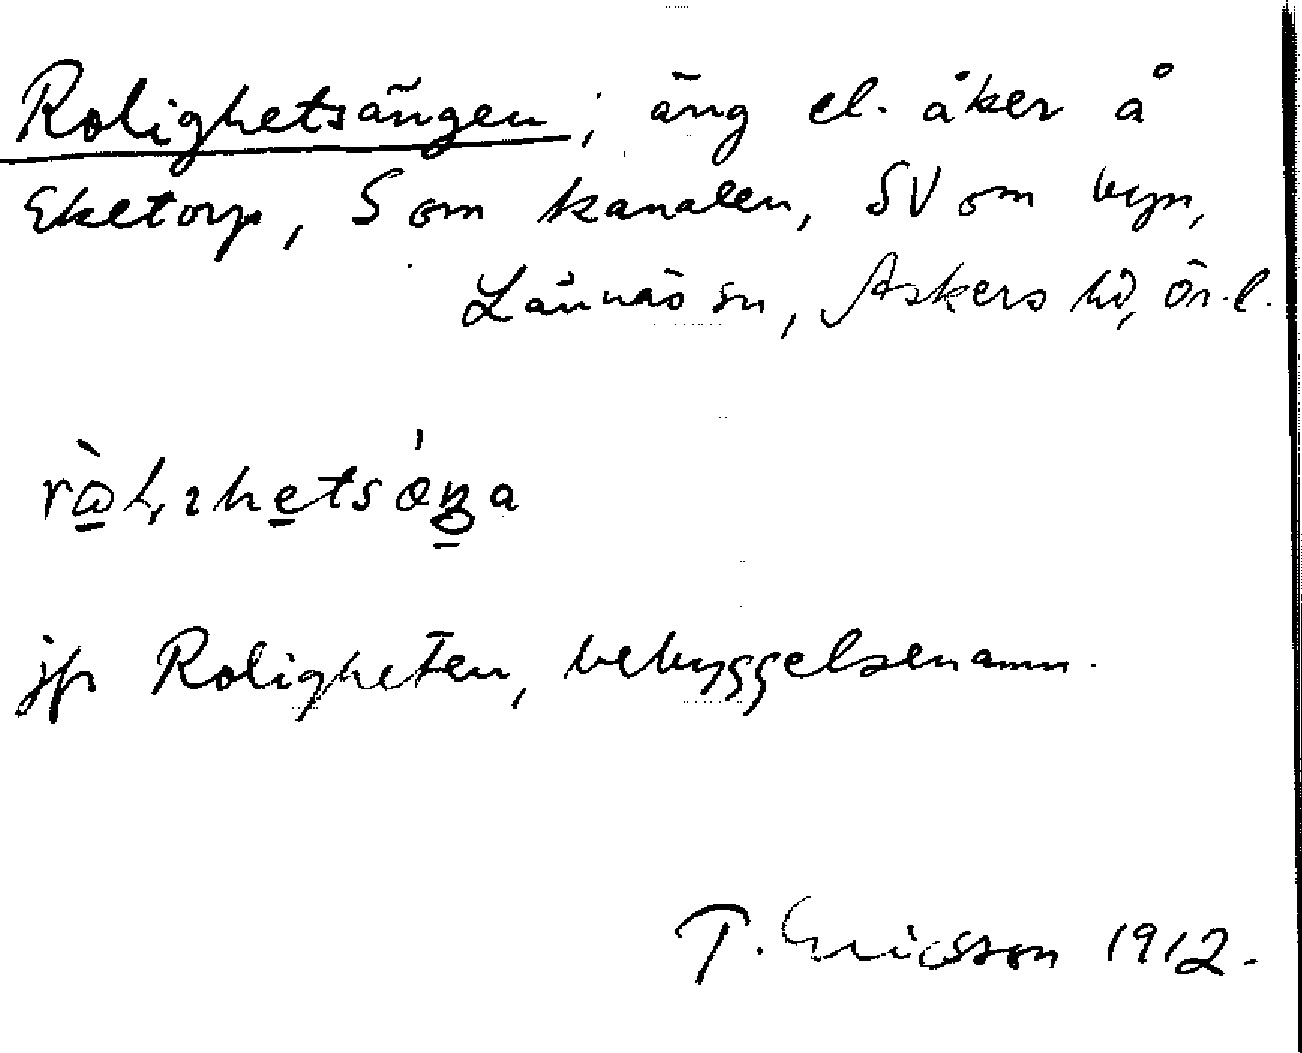 Rolighetsängen, äng el. åker å
Eketorp, S om kanalen, SV om byn,
Lännäs sn, Askers hd, Ör. l.
jfr Roligheten, bebyggelsenamn.
T. Ericsson 1912.